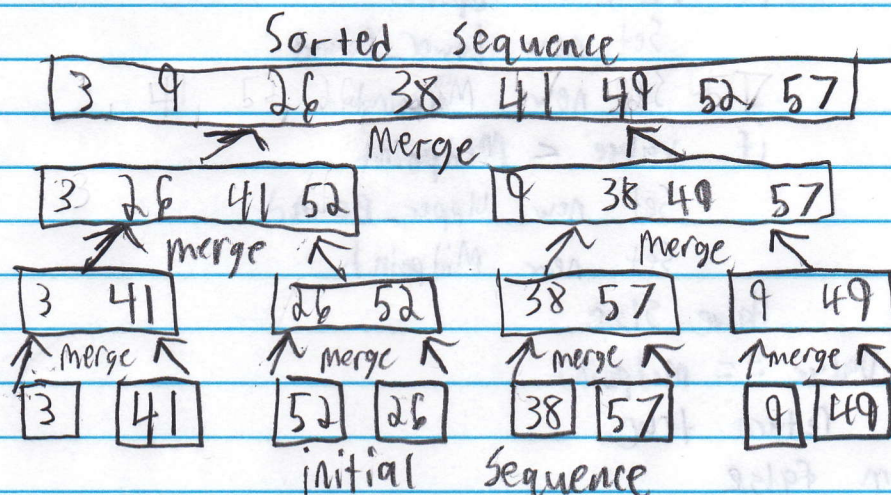 Sorted Sequence
3 9 26 38 41 49 52 57
Merge
3 26 41 52 9 38 49 57
merge Merge
3 41 26 52 38 57 9 49
merge merge merge merge
3 41 52 26 38 57 9 49
initial Sequence